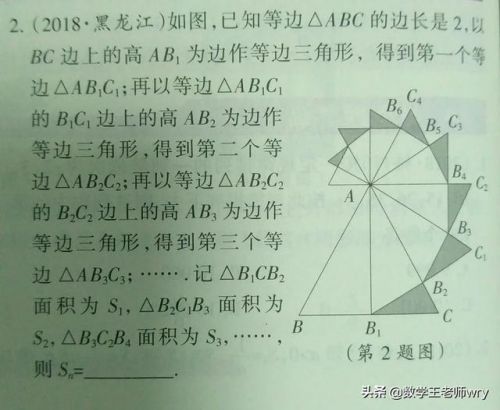 2. (2018·黑龙江)如图,已知等边△ABC的边长是2,以
BC边上的高AB₁为边作等边三角形,得到第一个等
边△AB₁C₁;再以等边△AB₁C₁
的B₁C₁边上的高AB₂为边作
等边三角形,得到第二个等
边△AB₂C₂;再以等边△AB₂C₂
的B₂C₂边上的高AB₃为边作
等边三角形,得到第三个等
边△AB₃C₃;…….记△B₁CB₂
面积为S₁,△B₂C₁B₃面积为
S₂,△B₃C₂B₄面积为S₃,……,
则Sₙ=________.
C₄
B₆
B₅
C₃
B₄
C₂
A
B₃
C₁
B₂
B
B₁
C
(第2题图)
头条 @数学王老师wry